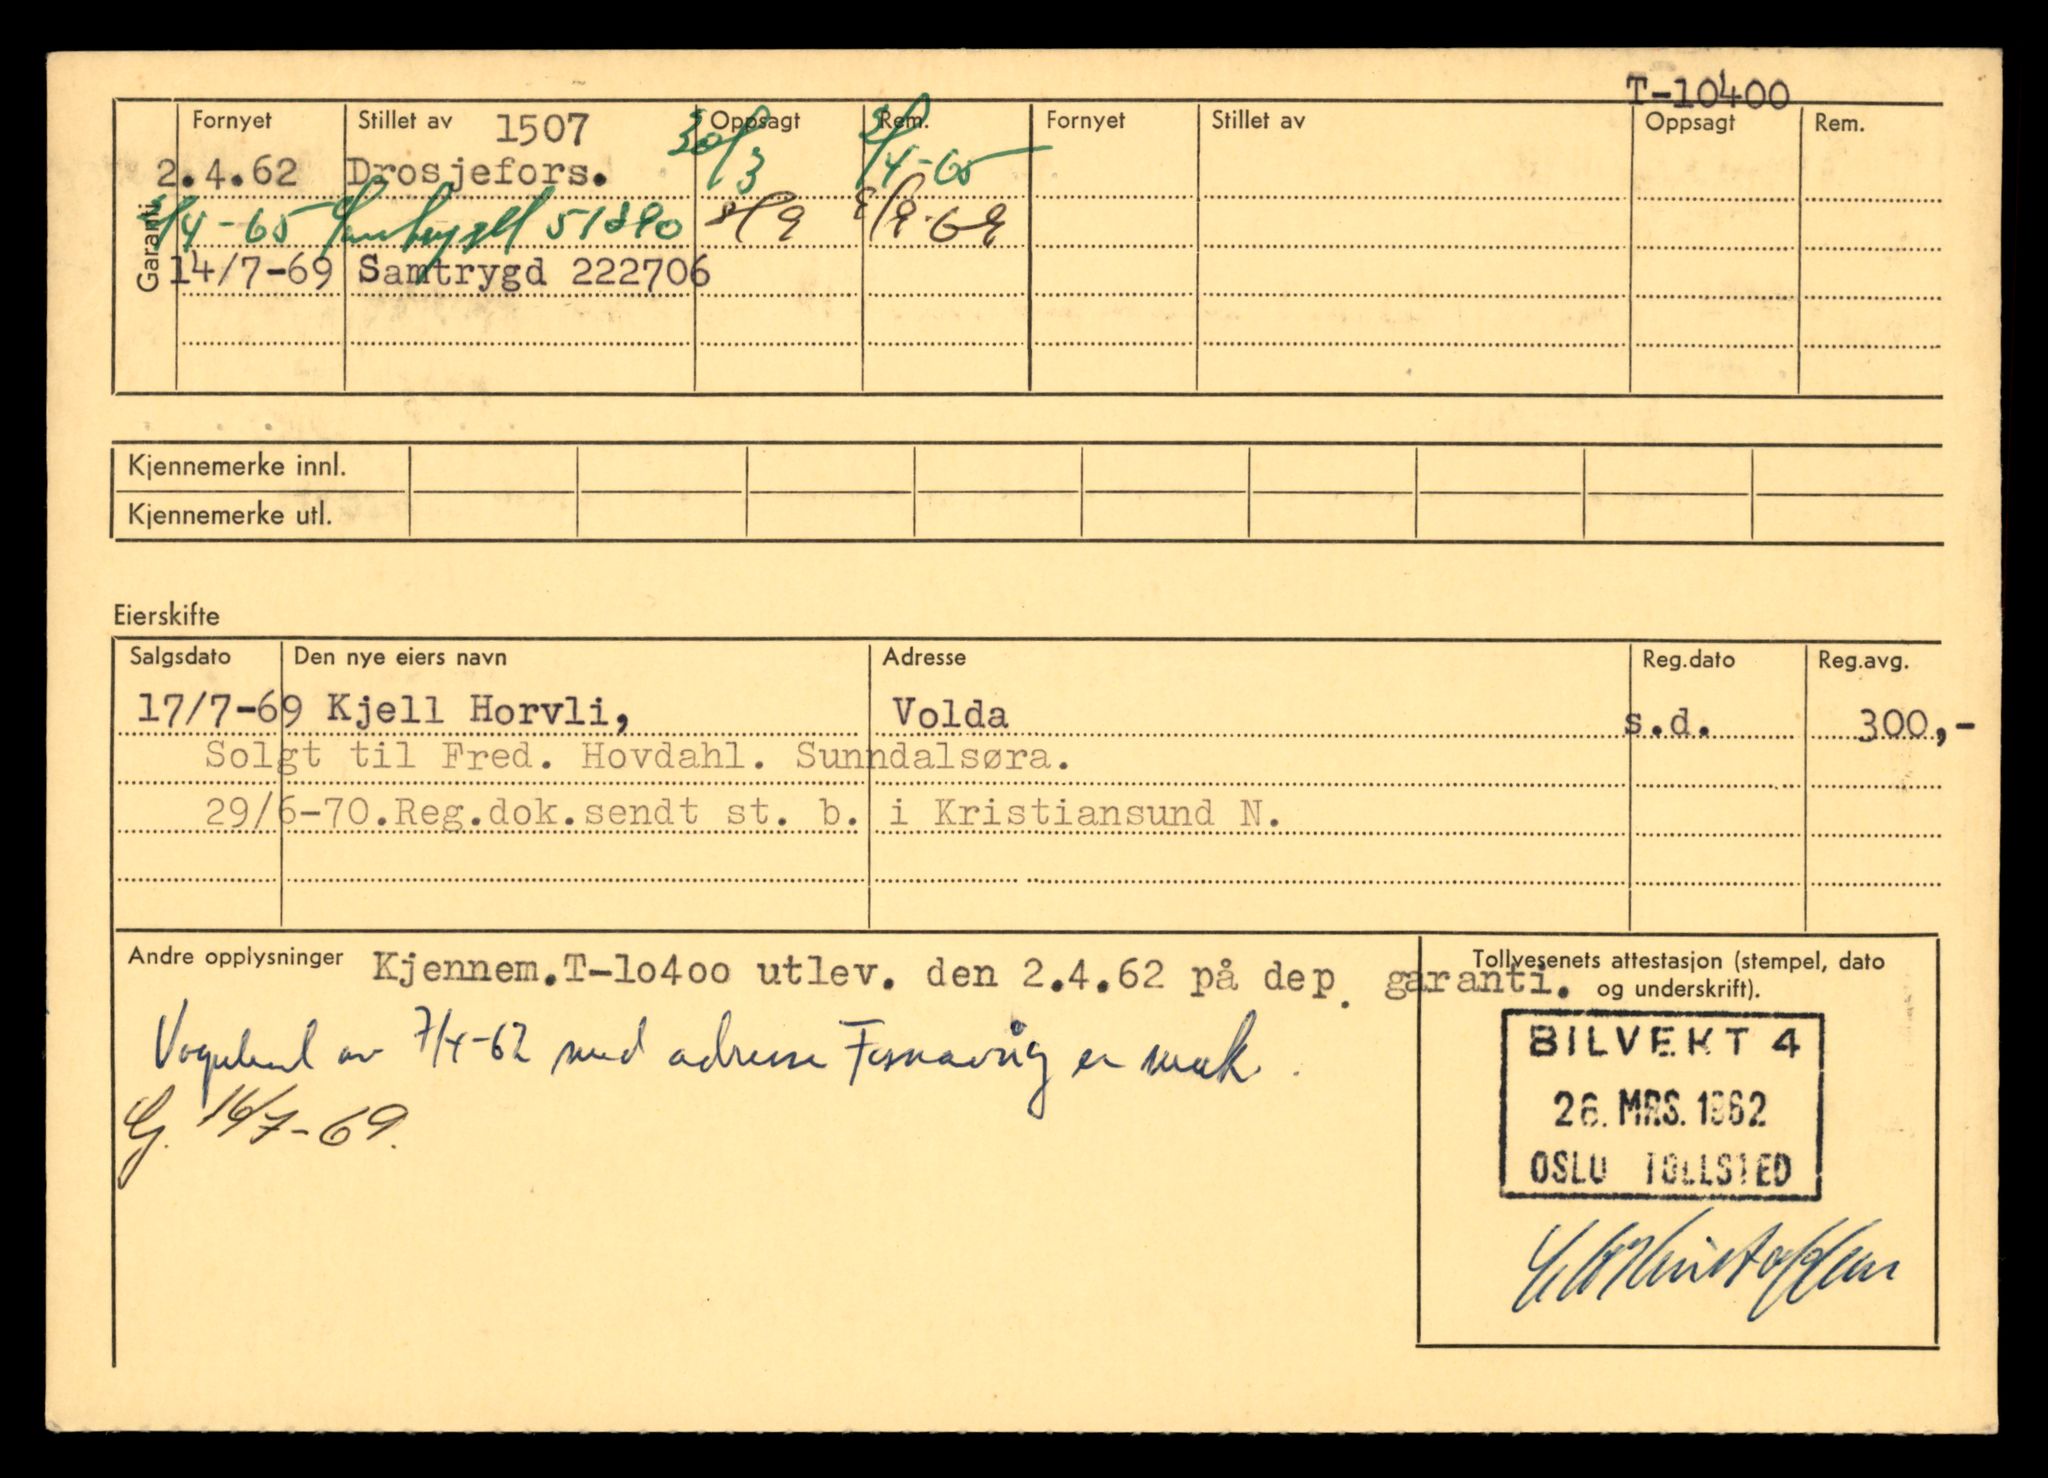 T-10400
Fornyet Stillet av 1507 Oppsagt Rem. Fornyet Stillet av Oppsagt Rem.
2.4.62 Drosjefors. 30/3 2/4-65
2/4-65 Samtrygd 51890 8/9 8/9-69
14/7-69 Samtrygd 222706
Garanti
Kjennemerke innl.
Kjennemerke utl.
Eierskifte
Salgsdato Den nye eiers navn Adresse Reg.dato Reg.avg.
17/7-69 Kjell Horvli, Volda s.d. 300,-
Solgt til Fred. Hovdahl. Sunndalsøra.
29/6-70.Reg.dok.sendt st. b. i Kristiansund N.
Andre opplysninger Kjennem.T-lo4oo utlev. den 2.4.62 på dep. garanti.
Vognkort av 7/4-62 med adresse Fosnavåg er mak.
G. 16/7-69.
Tollvesenets attestasjon (stempel, dato
og underskrift).
BILVEKT 4
26. MRS. 1962
OSLO TOLLSTED